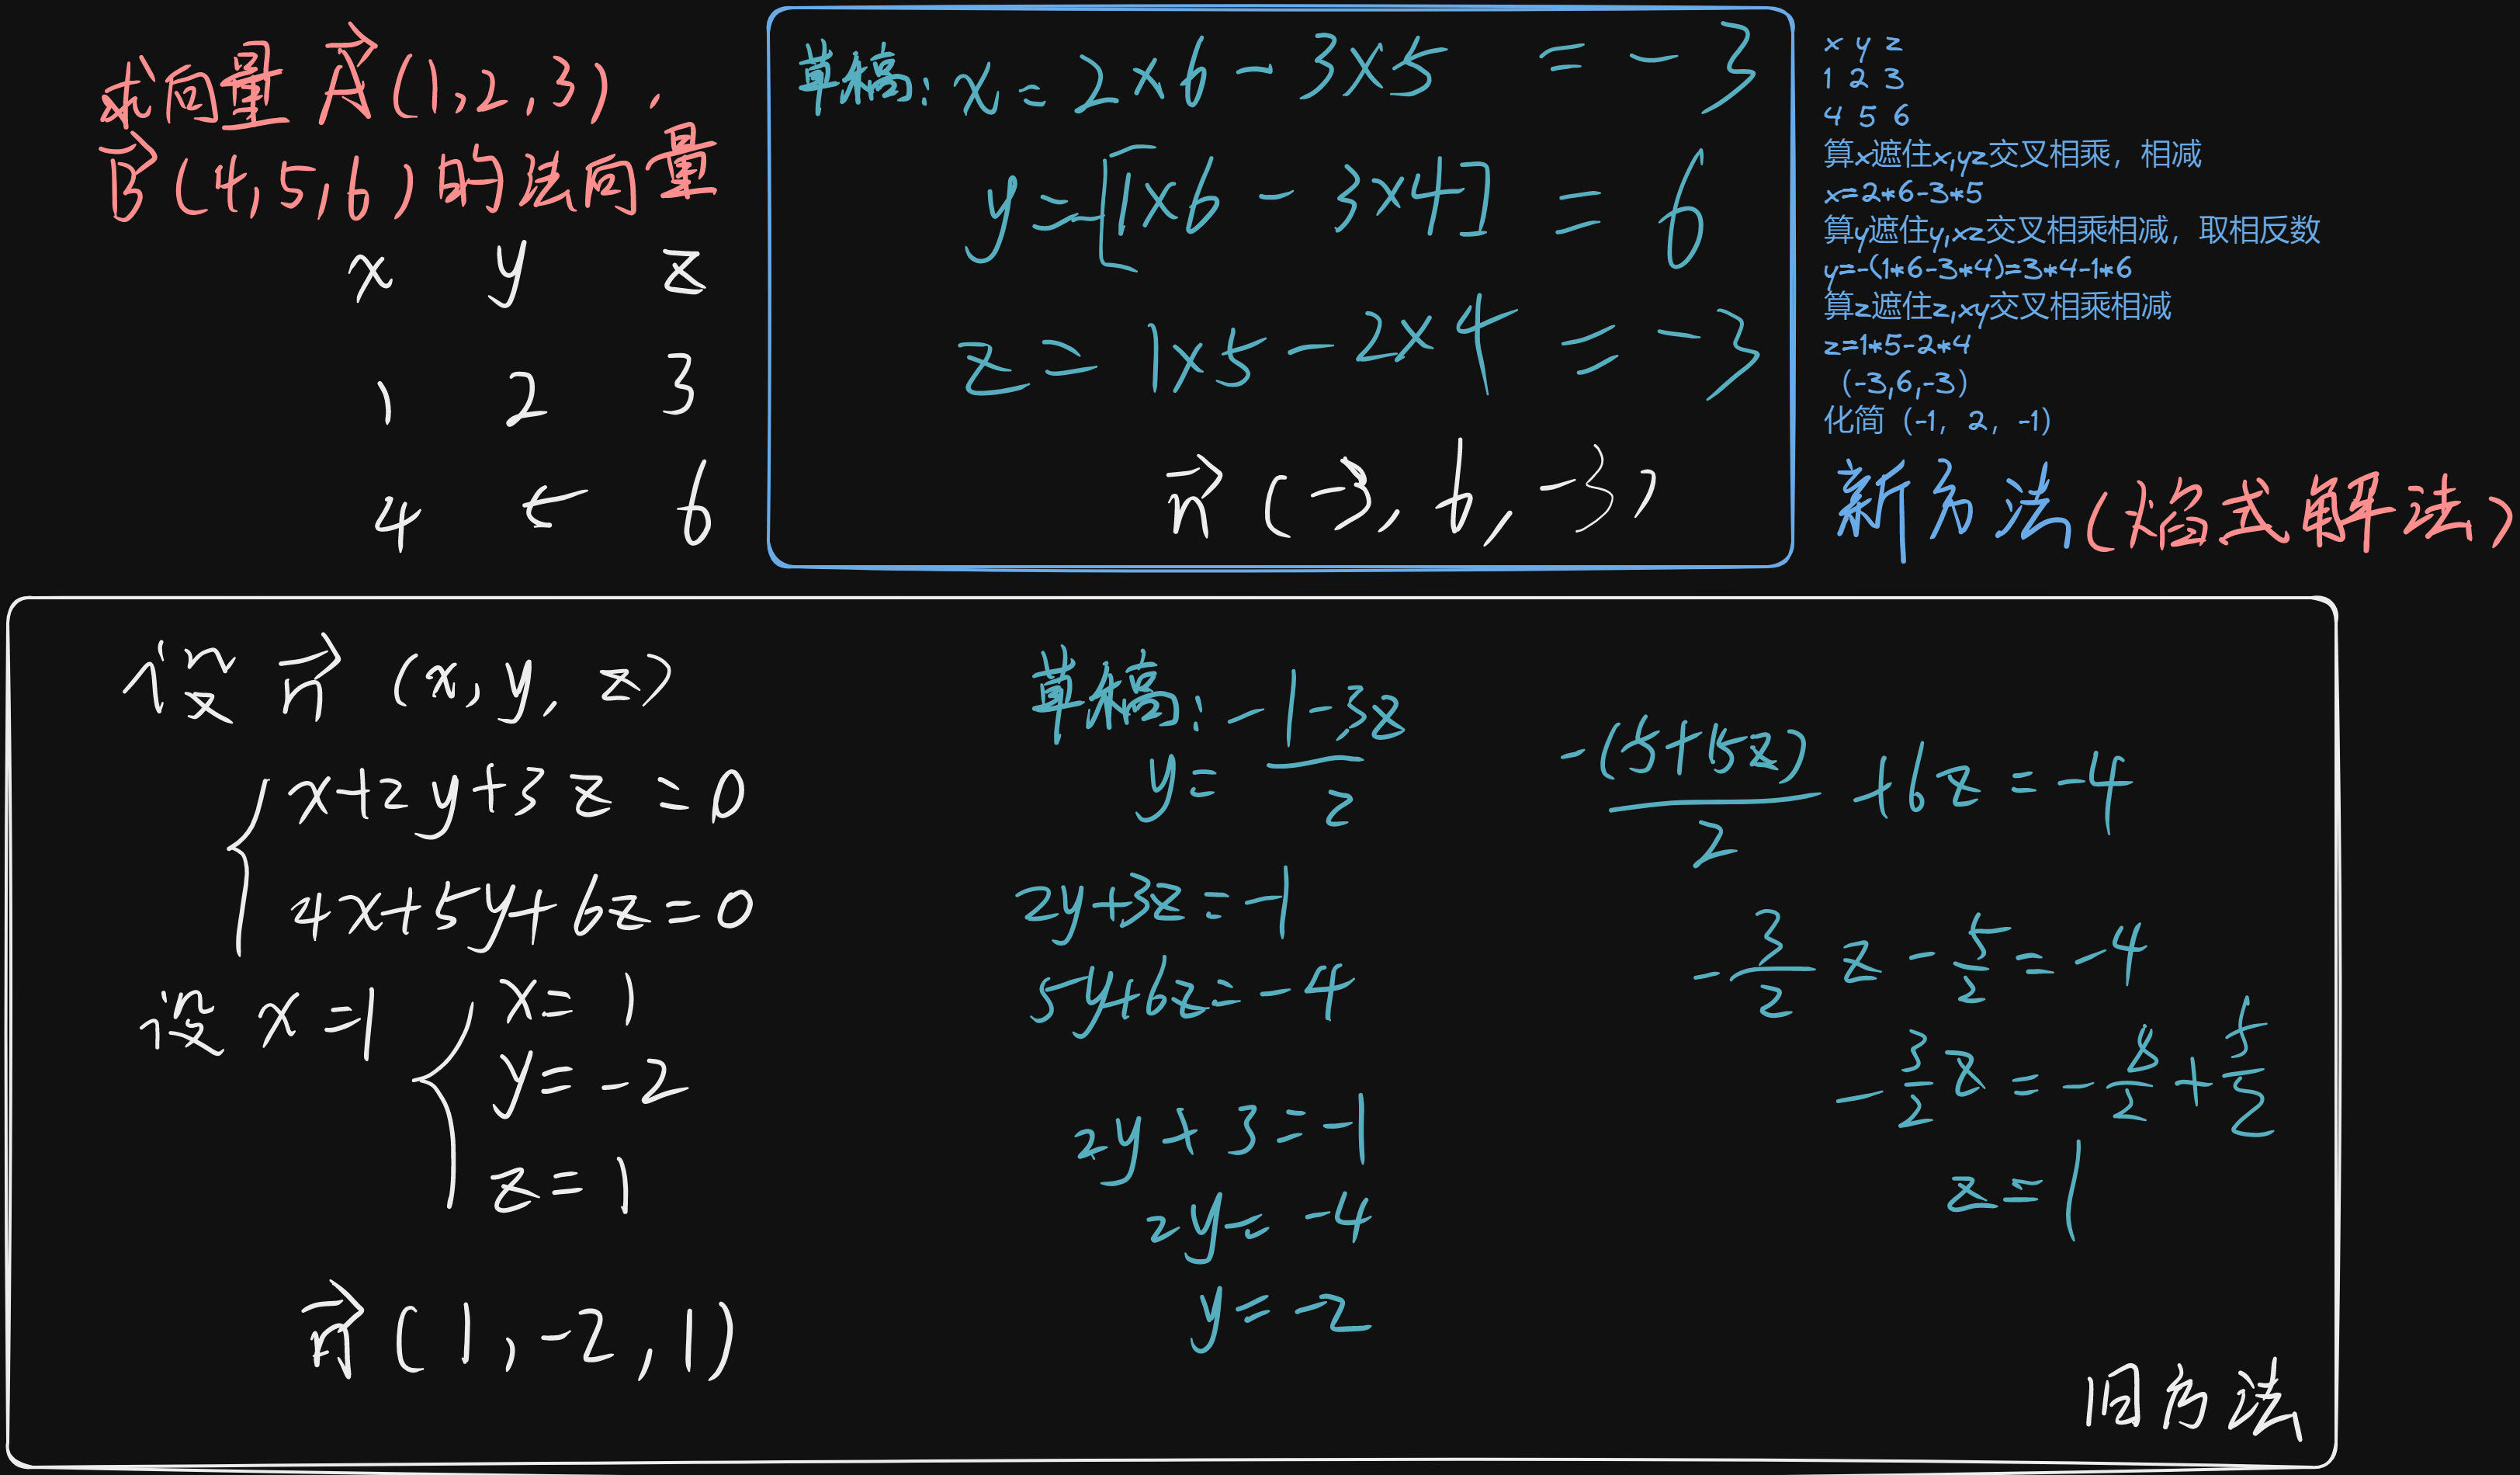 求向量 A(1,2,3),
B(4,5,6)的法向量
x y z
1 2 3
4 5 6
草稿: x = 2×6 - 3×5 = -3
y = -[1×6 - 3×4] = 6
z = 1×5 - 2×4 = -3
n (-3, 6, -3)
x y z
1 2 3
4 5 6
算x遮住x,yz交叉相乘，相减
x=2*6-3*5
算y遮住y,xz交叉相乘相减，取相反数
y=-(1*6-3*4)=3*4-1*6
算z遮住z,xy交叉相乘相减
z=1*5-2*4
（-3,6,-3）
化简（-1，2，-1）
新方法(焰式解法)
设 n (x, y, z)
x+2y+3z=0
4x+5y+6z=0
设 x=1
x=1
y=-2
z=1
n (1,-2,1)
草稿:
y=(-1-3z)/2
2y+3z=-1
5y+6z=-4
2y+3=-1
2y=-4
y=-2
-(5+15z)/2+6z=-4
-3/2 z-5/2=-4
-3/2 z=-8/2+5/2
z=1
旧方法